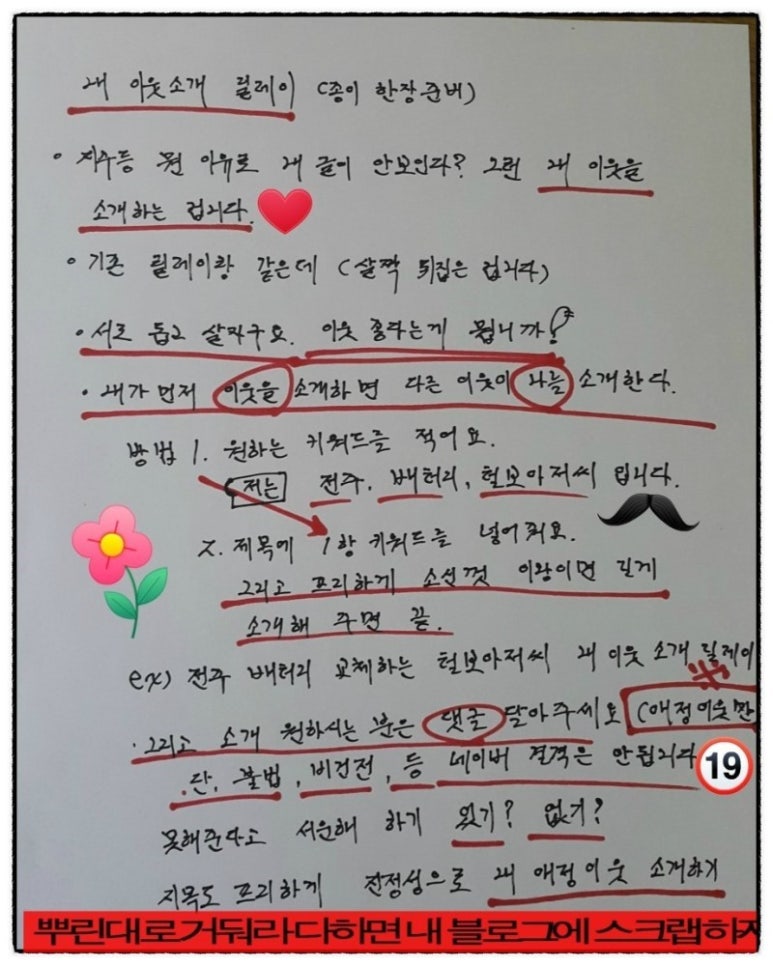 내 이웃소개 릴레이 (종이 한장준비)
• 지수등 뭔 이유로 내 글이 안보인다? 그런 내 이웃을
소개하는 겁니다.
• 기존 릴레이랑 같은데 (살짝 뒤집은 겁니다)
• 서로 돕고 살자구요. 이웃 좋다는게 뭡니까!
• 내가 먼저 이웃을 소개하면 다른 이웃이 나를 소개한다.
방법 1. 원하는 키워드를 적어요.
저는 전주, 배터리, 털보아저씨 입니다.
2. 제목에 1항 키워드를 넣어줘요.
그리고 프리하게 소신껏 이왕이면 길게
소개해 주면 끝.
ex) 전주 배터리 교체하는 털보아저씨 내 이웃 소개 릴레이
• 그리고 소개 원하시는 분은 댓글 달아주세요 (애정이웃만
. 단, 불법, 비건전, 등 네이버 결격은 안됩니다
19
못해준다고 서운해 하기 있기? 없기?
지목도 프리하게 진정성으로 내 애정이웃 소개하기
뿌린대로거둬라다하면내블로그에스크랩하자